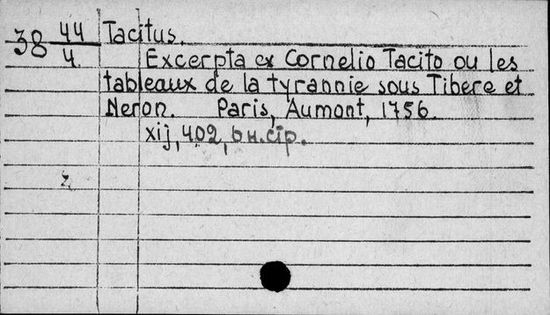 38 44/4. Tacitus.
Excerpta ex Cornelio Tacito ou les
tableaux de la tyrannie sous Tibere et
Neron. Paris, Aumont, 1756.
xij, 402, 6 н. стр.
2.